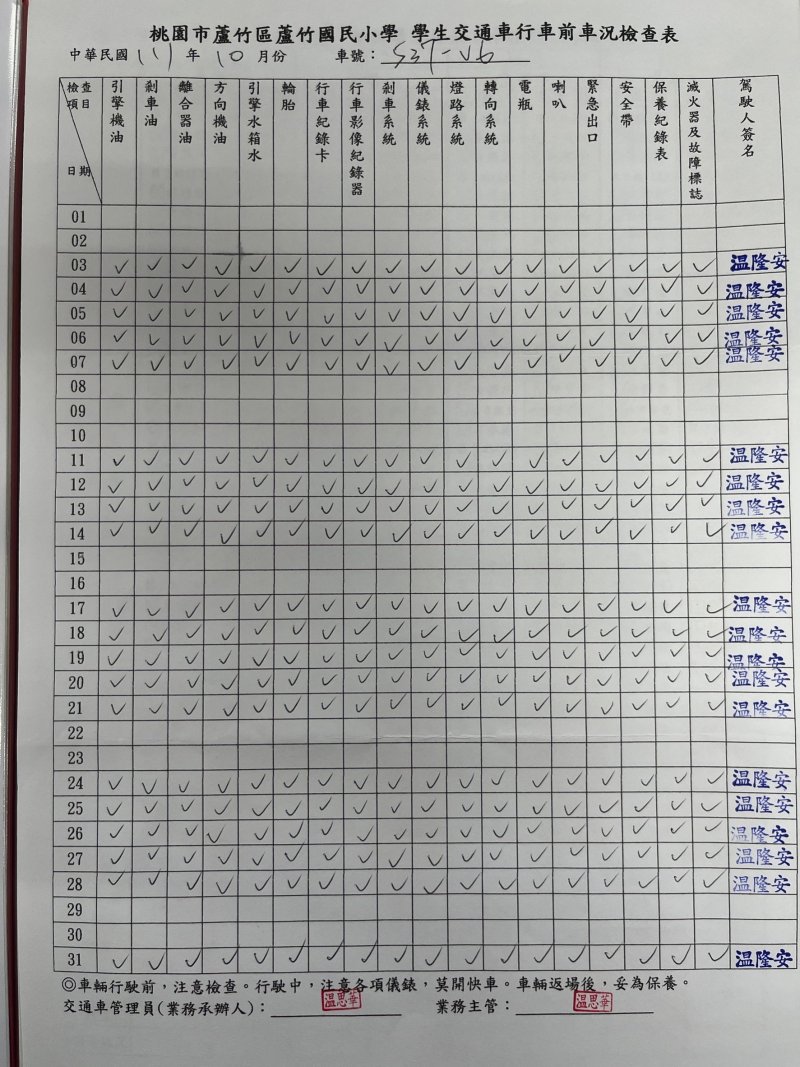 桃園市蘆竹區蘆竹國民小學 學生交通車行車前車況檢查表
中華民國 111 年 10 月份 車號：537-V6
檢查項目 日期 引擎機油 剎車油 離合器油 方向機油 引擎水箱水 輪胎 行車紀錄卡 行車影像紀錄器 剎車系統 儀錶系統 燈路系統 轉向系統 電瓶 喇叭 緊急出口 安全帶 保養紀錄表 滅火器及故障標誌 駕駛人簽名
01
02
03 ✓ ✓ ✓ ✓ ✓ ✓ ✓ ✓ ✓ ✓ ✓ ✓ ✓ ✓ ✓ ✓ ✓ ✓ 温隆安
04 ✓ ✓ ✓ ✓ ✓ ✓ ✓ ✓ ✓ ✓ ✓ ✓ ✓ ✓ ✓ ✓ ✓ ✓ 温隆安
05 ✓ ✓ ✓ ✓ ✓ ✓ ✓ ✓ ✓ ✓ ✓ ✓ ✓ ✓ ✓ ✓ ✓ ✓ 温隆安
06 ✓ ✓ ✓ ✓ ✓ ✓ ✓ ✓ ✓ ✓ ✓ ✓ ✓ ✓ ✓ ✓ ✓ ✓ 温隆安
07 ✓ ✓ ✓ ✓ ✓ ✓ ✓ ✓ ✓ ✓ ✓ ✓ ✓ ✓ ✓ ✓ ✓ ✓ 温隆安
08
09
10
11 ✓ ✓ ✓ ✓ ✓ ✓ ✓ ✓ ✓ ✓ ✓ ✓ ✓ ✓ ✓ ✓ ✓ ✓ 温隆安
12 ✓ ✓ ✓ ✓ ✓ ✓ ✓ ✓ ✓ ✓ ✓ ✓ ✓ ✓ ✓ ✓ ✓ ✓ 温隆安
13 ✓ ✓ ✓ ✓ ✓ ✓ ✓ ✓ ✓ ✓ ✓ ✓ ✓ ✓ ✓ ✓ ✓ ✓ 温隆安
14 ✓ ✓ ✓ ✓ ✓ ✓ ✓ ✓ ✓ ✓ ✓ ✓ ✓ ✓ ✓ ✓ ✓ ✓ 温隆安
15
16
17 ✓ ✓ ✓ ✓ ✓ ✓ ✓ ✓ ✓ ✓ ✓ ✓ ✓ ✓ ✓ ✓ ✓ ✓ 温隆安
18 ✓ ✓ ✓ ✓ ✓ ✓ ✓ ✓ ✓ ✓ ✓ ✓ ✓ ✓ ✓ ✓ ✓ ✓ 温隆安
19 ✓ ✓ ✓ ✓ ✓ ✓ ✓ ✓ ✓ ✓ ✓ ✓ ✓ ✓ ✓ ✓ ✓ ✓ 温隆安
20 ✓ ✓ ✓ ✓ ✓ ✓ ✓ ✓ ✓ ✓ ✓ ✓ ✓ ✓ ✓ ✓ ✓ ✓ 温隆安
21 ✓ ✓ ✓ ✓ ✓ ✓ ✓ ✓ ✓ ✓ ✓ ✓ ✓ ✓ ✓ ✓ ✓ ✓ 温隆安
22
23
24 ✓ ✓ ✓ ✓ ✓ ✓ ✓ ✓ ✓ ✓ ✓ ✓ ✓ ✓ ✓ ✓ ✓ ✓ 温隆安
25 ✓ ✓ ✓ ✓ ✓ ✓ ✓ ✓ ✓ ✓ ✓ ✓ ✓ ✓ ✓ ✓ ✓ ✓ 温隆安
26 ✓ ✓ ✓ ✓ ✓ ✓ ✓ ✓ ✓ ✓ ✓ ✓ ✓ ✓ ✓ ✓ ✓ ✓ 温隆安
27 ✓ ✓ ✓ ✓ ✓ ✓ ✓ ✓ ✓ ✓ ✓ ✓ ✓ ✓ ✓ ✓ ✓ ✓ 温隆安
28 ✓ ✓ ✓ ✓ ✓ ✓ ✓ ✓ ✓ ✓ ✓ ✓ ✓ ✓ ✓ ✓ ✓ ✓ 温隆安
29
30
31 ✓ ✓ ✓ ✓ ✓ ✓ ✓ ✓ ✓ ✓ ✓ ✓ ✓ ✓ ✓ ✓ ✓ ✓ 温隆安
◎車輛行駛前，注意檢查。行駛中，注意各項儀錶，莫開快車。車輛返場後，妥為保養。
交通車管理員(業務承辦人)：温思華 業務主管：温思華